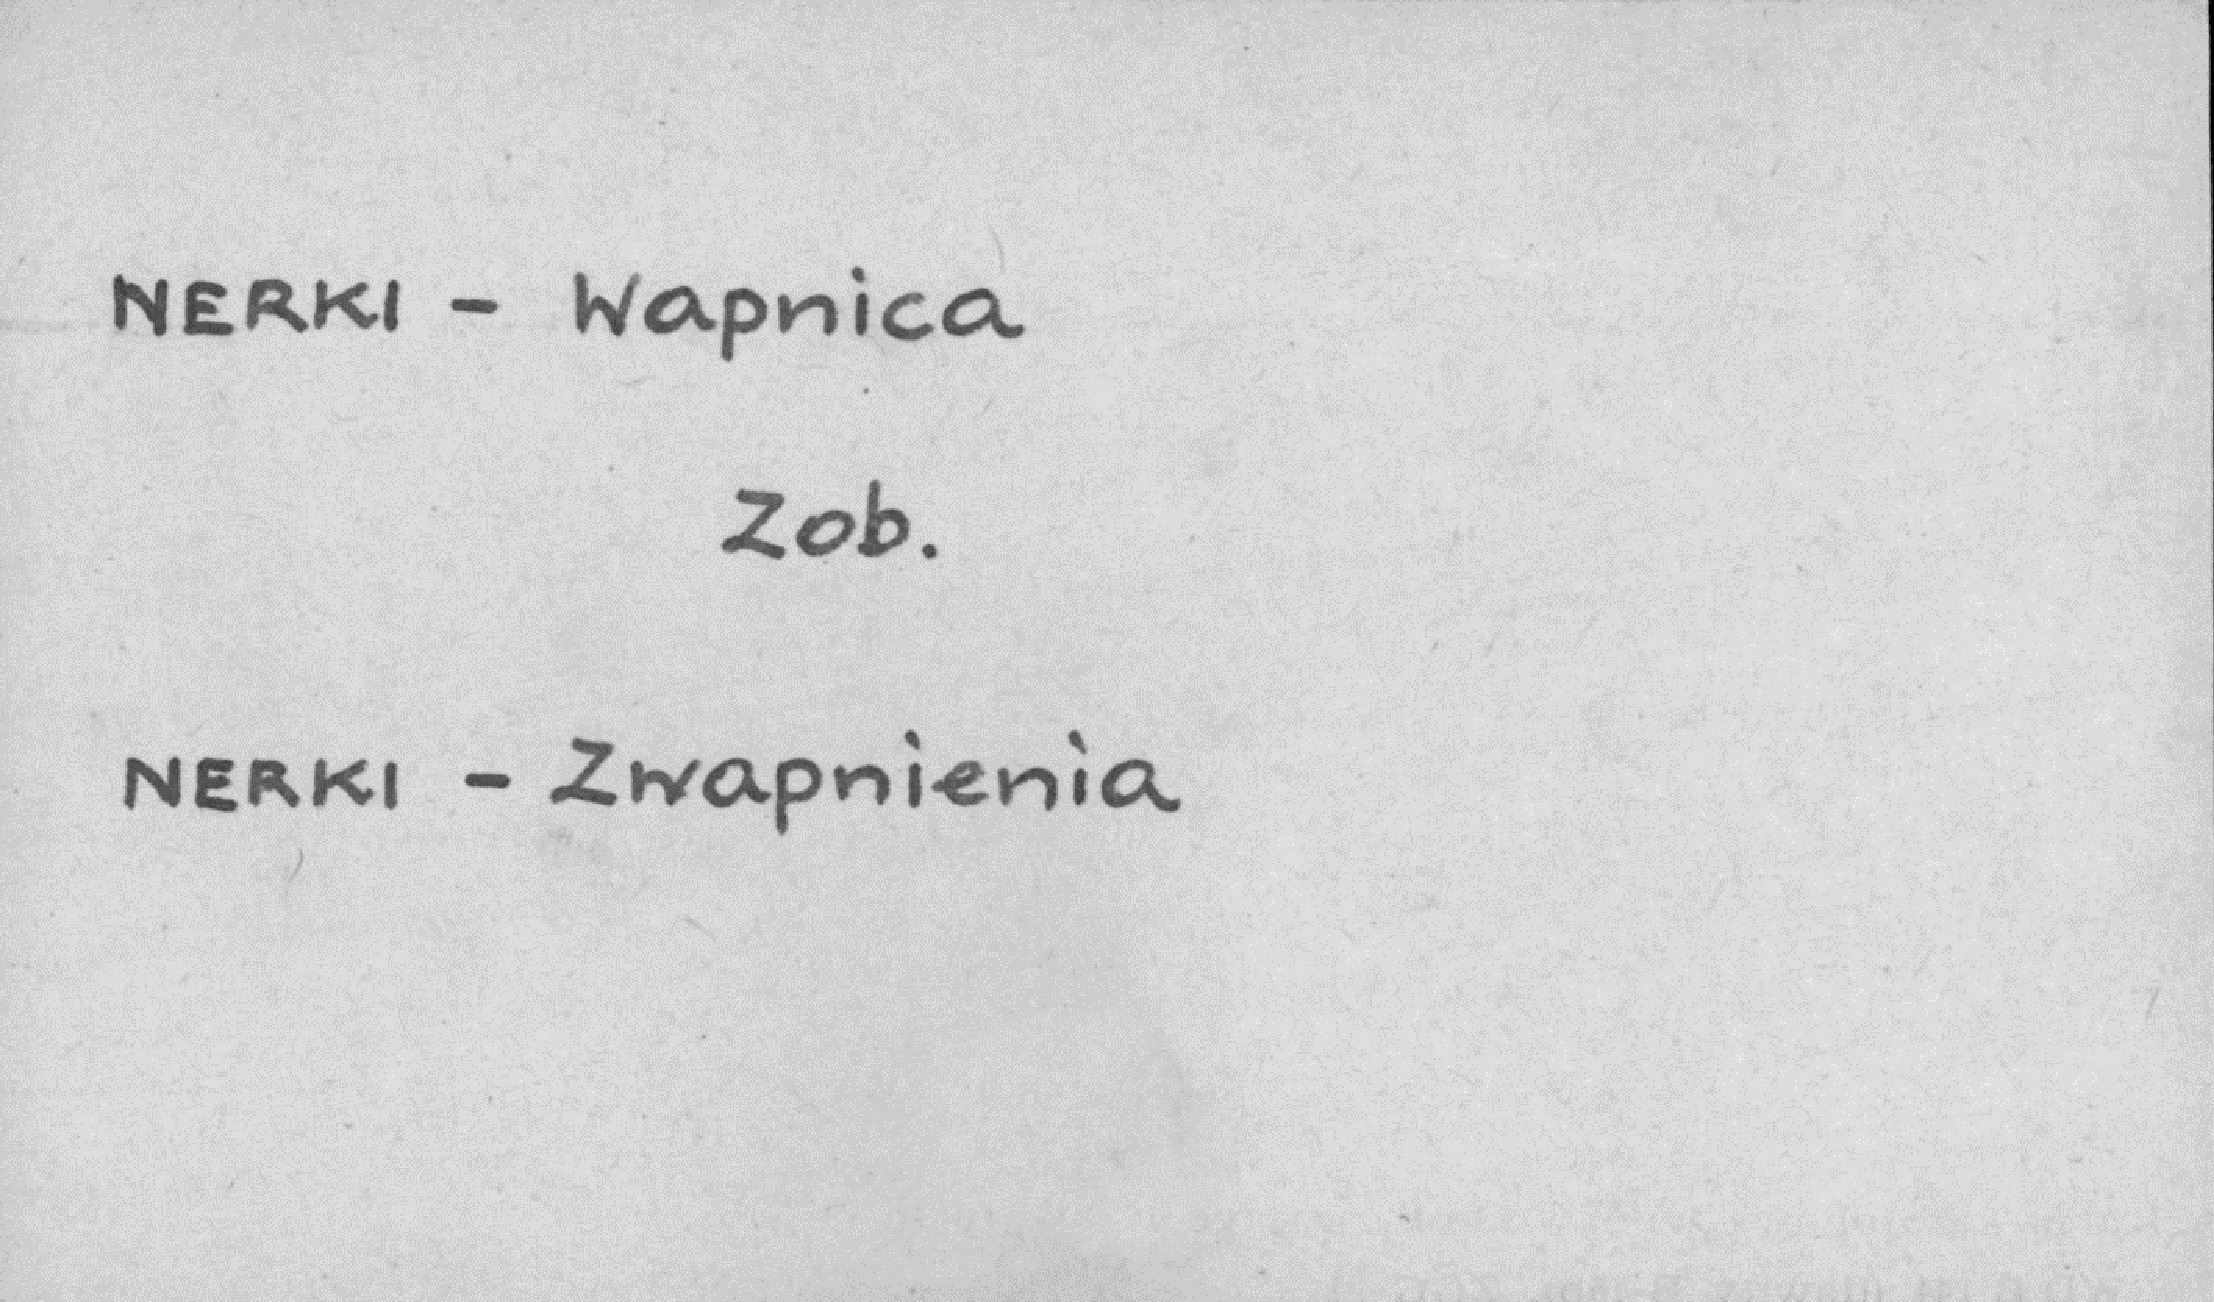 NERKI - Wapnica
Zob.
NERKI - Zwapnienia